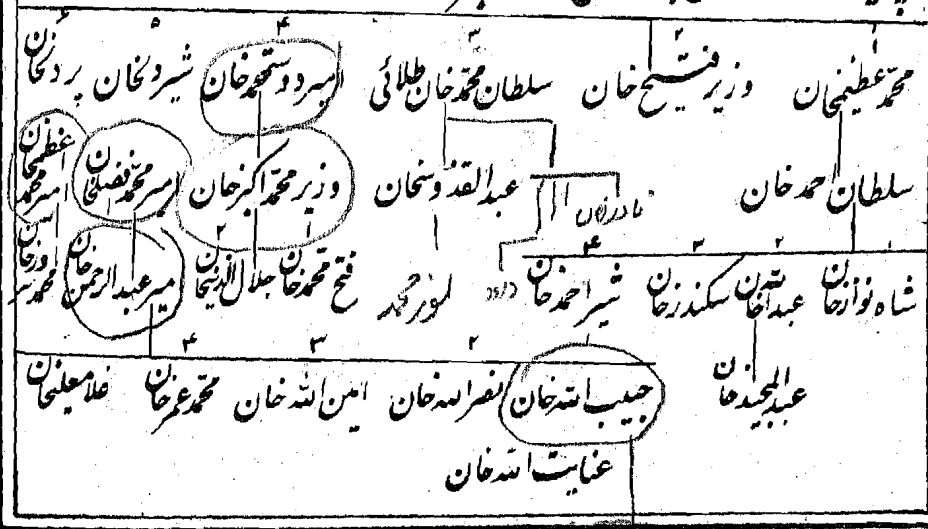 ۱ ۲ ۳ ۴ ۵ ۶
محمد عظیمخان وزیر فتح خان سلطان محمد خان طلائی امیر دوستمحمد خان شیردلخان پردلخان
سلطان احمد خان عبدالقدوسخان وزیر محمد اکبر خان امیر محمد افضلخان امیر محمد اعظمخان
۱ ۲ ۳ ۴ ۱ ۲
شاه نواز خان عبدالله خان سکندر خان شیر احمد خان داود نور محمد فتح محمد خان جلال الدینخان میر عبدالرحمن خان
۲ ۳ ۴
عبدالمجید خان حبیب الله خان نصر الله خان امین الله خان محمد عمر خان غلامعلیخان
عنایت الله خان